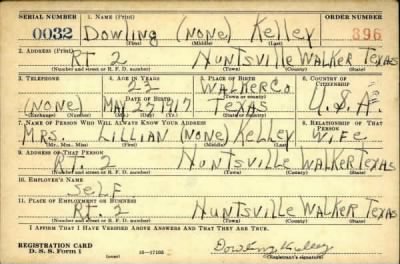 SERIAL NUMBER 1. NAME (Print) ORDER NUMBER
0032 Dowling (NONE) Kelley 396
(First) (Middle) (Last)
2. ADDRESS (Print)
RT. 2 Huntsville Walker Texas
(Number and street or R. F. D. number) (Town) (County) (State)
3. TELEPHONE 4. AGE IN YEARS 5. PLACE OF BIRTH 6. COUNTRY OF CITIZENSHIP
23 Walker Co.
DATE OF BIRTH (Town or county)
(None) May 27 1917 Texas U.S.A.
(Exchange) (Number) (Mo.) (Day) (Yr.) (State or country)
7. NAME OF PERSON WHO WILL ALWAYS KNOW YOUR ADDRESS 8. RELATIONSHIP OF THAT PERSON
Mrs. Lillian (None) Kelley Wife
(Mr., Mrs., Miss) (First) (Middle) (Last)
9. ADDRESS OF THAT PERSON
RT. 2 Huntsville Walker Texas
(Number and street or R. F. D. number) (Town) (County) (State)
10. EMPLOYER'S NAME
Self
11. PLACE OF EMPLOYMENT OR BUSINESS
RT. 2 Huntsville Walker Texas
(Number and street or R. F. D. number) (Town) (County) (State)
I AFFIRM THAT I HAVE VERIFIED ABOVE ANSWERS AND THAT THEY ARE TRUE.
REGISTRATION CARD
D. S. S. Form 1 (over) 16—17105 Dowling Kelley
(Registrant's signature)